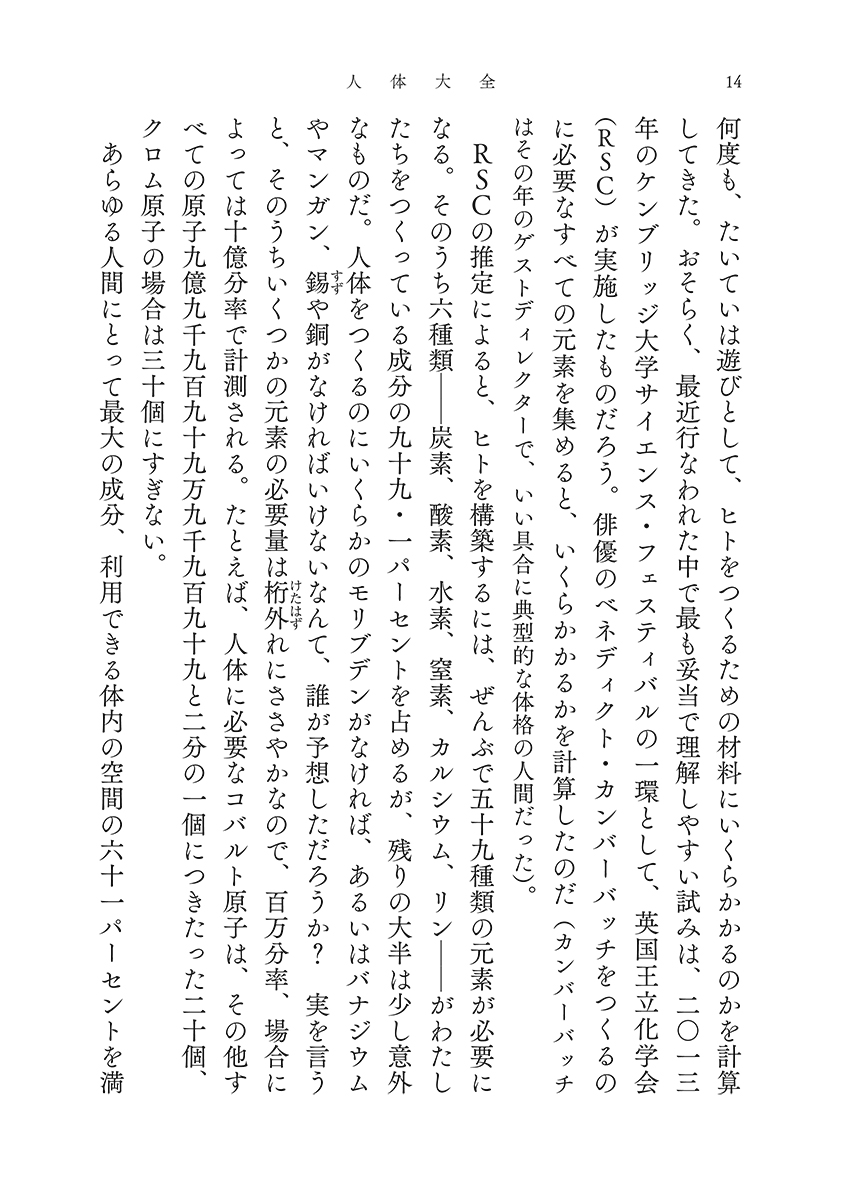 人体大全
14
何度も、たいていは遊びとして、ヒトをつくるための材料にいくらかかるのかを計算
してきた。おそらく、最近行なわれた中で最も妥当で理解しやすい試みは、二〇一三
年のケンブリッジ大学サイエンス・フェスティバルの一環として、英国王立化学会
（RSC）が実施したものだろう。俳優のベネディクト・カンバーバッチをつくるの
に必要なすべての元素を集めると、いくらかかるかを計算したのだ（カンバーバッチ
はその年のゲストディレクターで、いい具合に典型的な体格の人間だった）。
　RSCの推定によると、ヒトを構築するには、ぜんぶで五十九種類の元素が必要に
なる。そのうち六種類――炭素、酸素、水素、窒素、カルシウム、リン――がわたし
たちをつくっている成分の九十九・一パーセントを占めるが、残りの大半は少し意外
なものだ。人体をつくるのにいくらかのモリブデンがなければ、あるいはバナジウム
やマンガン、錫すずや銅がなければいけないなんて、誰が予想しただろうか？　実を言う
と、そのうちいくつかの元素の必要量は桁外けたはずれにささやかなので、百万分率、場合に
よっては十億分率で計測される。たとえば、人体に必要なコバルト原子は、その他す
べての原子九億九千九百九十九万九千九百九十九と二分の一個につきたった二十個、
クロム原子の場合は三十個にすぎない。
　あらゆる人間にとって最大の成分、利用できる体内の空間の六十一パーセントを満